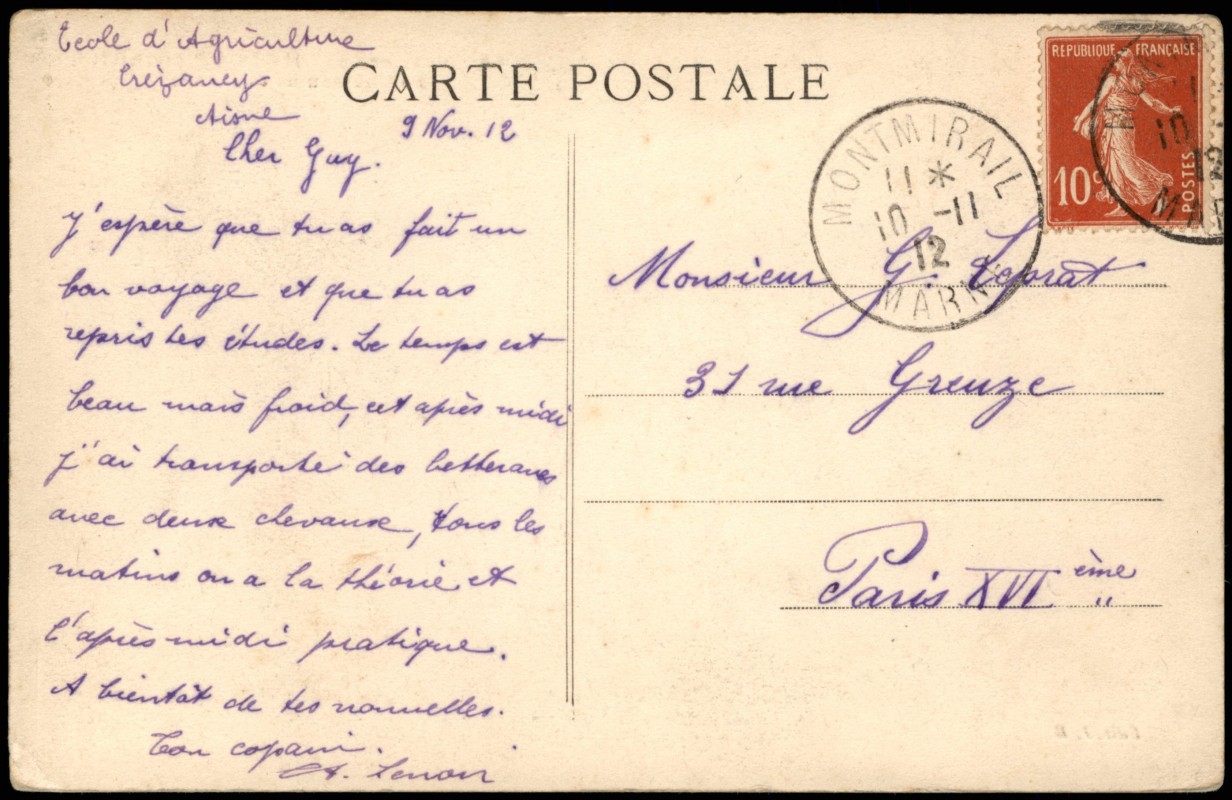 Ecole d'Agriculture
Crézancy
Aisne
CARTE POSTALE
9 Nov. 12
Cher Guy.
J'espère que tu as fait un
bon voyage et que tu as
repris tes études. Le temps est
beau mais froid, cet après midi
j'ai transporté des betteraves
avec deux chevaux, tous les
matins on a la théorie et
l'après midi pratique.
A bientôt de tes nouvelles.
Ton copain.
A. Lenoir
REPUBLIQUE FRANÇAISE
10c
POSTES
MONTMIRAIL
11 *
10 -11
12
MARNE
10
12
MAR
Monsieur G. Leprat
31 rue Greuze
Paris XVI ème